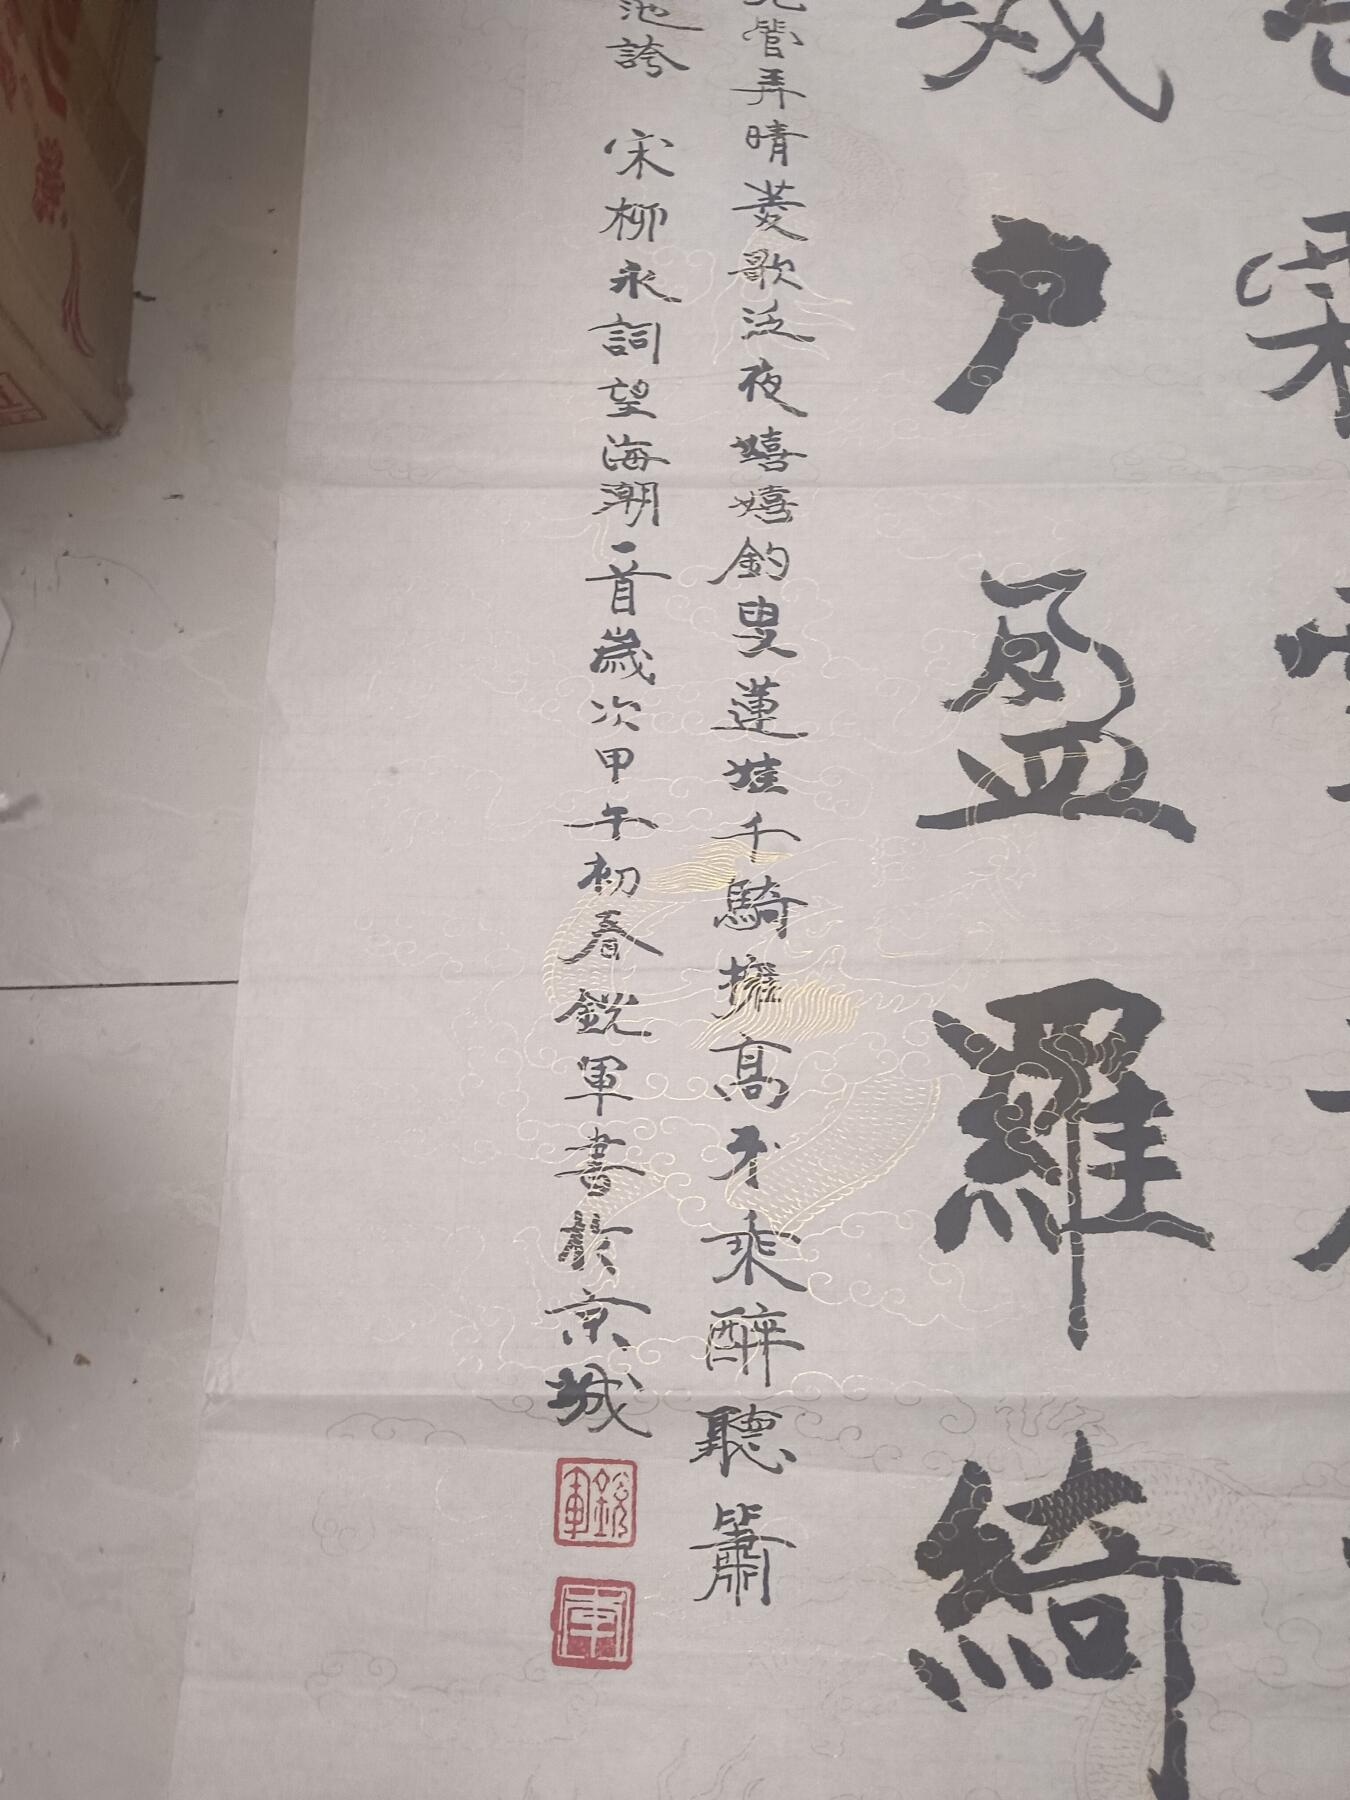 戶盈羅綺
管弄晴菱歌泛夜嬉嬉釣叟蓮娃千騎擁高牙乘醉聽簫
池誇 宋柳永詞望海潮一首歲次甲午初春銳軍書於京城
銳軍
軍